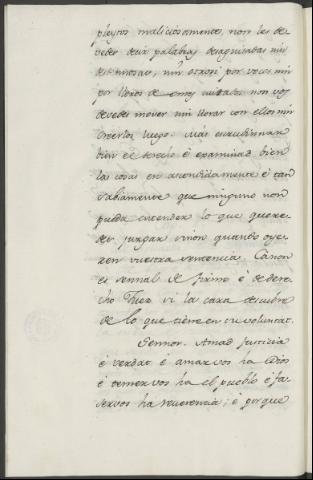 pleytos maliciosamente, non les de
vedes decir palabras desaguisadas nin
des nin otrosi por voces nin
por lloros de no vos
devedes mover nin llorar con ellos nin
creerlos luego. mas escudrinnan
bien el derecho é examinad bien
las cosas en ascondidamente é tan
sabiamente que ninguno non
pueda entender lo que quere
des juzgar sinon quando oye
ren vuestra sentencia. Ca non
es sennal de firme é de dere
cho Juez si la cara descubre
de lo que tiene en su voluntat.
Sennor. Amad justicia
é verdat é amar vos ha Dios
é temer vos ha el pueblo é fa
servos ha reverencia; é porque